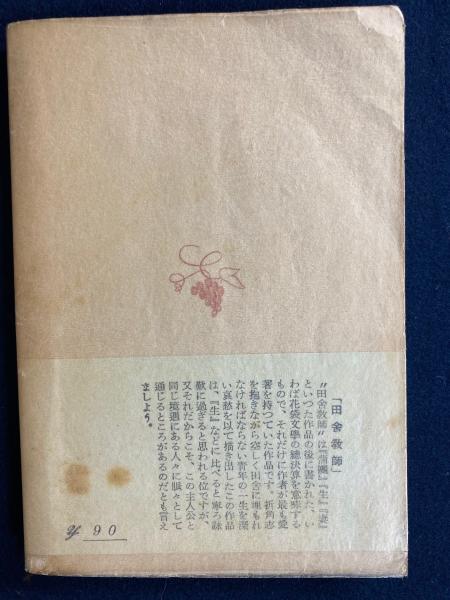 「田舎教師」
"田舎教師"は『蒲團』『生』『妻』
といつた作品の後に書かれた、い
わば花袋文學の總決算を意味する
もので、それだけに作者が最も愛
著を持つていた作品です。折角志
を抱きながら空しく田舎に埋もれ
なければならない青年の一生を深
い哀愁を以て描き出したこの作品
は、『生』などに比べると寧ろ詠
歎に過ぎると思われる位ですが、
又それだからこそ、この主人公と
同じ境遇にある人々に脈々として
通じるところがあるのだとも言え
ましよう。
¥ 90